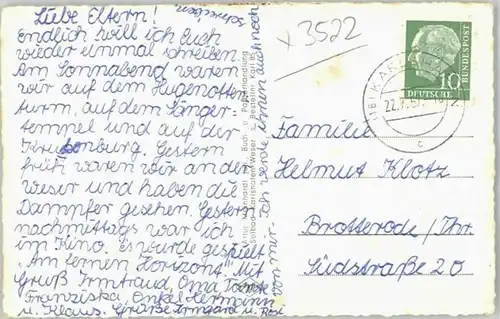 Liebe Eltern!
Endlich will ich Euch
wieder einmal schreiben.
Am Sonnabend waren
wir auf dem Hugenotten-
turm, auf dem Sänger-
tempel und auf der
Krukenburg. Gestern
früh waren wir an der
Weser und haben die
Dampfer gesehen. Gestern
nachmittags war ich
im Kino. Es wurde gespielt
"Am fernen Horizont". Mit
Gruß Irmtraud, Oma, Tante
Franziska, Onkel Hermann
u. Klaus. Grüße Irmgard u.
von mir. ich werde ihnen auch noch
schreiben
Buch- u. Papierhandlung
x 3522
DEUTSCHE
BUNDESPOST
10
22.7.57
c
Familie
Helmut Klotz
Brotterode/Thr.
Südstraße 20